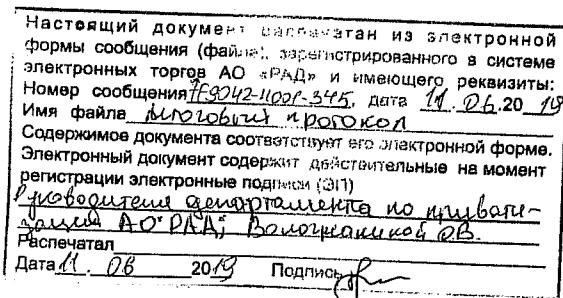 Настоящий документ распечатан из электронной
формы сообщения (файла), зарегистрированного в системе
электронных торгов АО «РАД» и имеющего реквизиты:
Номер сообщения дата 11.06.2019
Имя файла Итоговый протокол
Содержимое документа соответствует его электронной форме.
Электронный документ содержит действительные на момент
регистрации электронные подписи (ЭП)
Руководителя департамента по привати-
зации АО "РАД", О.В.
Распечатал
Дата 11.06 2019 Подпись